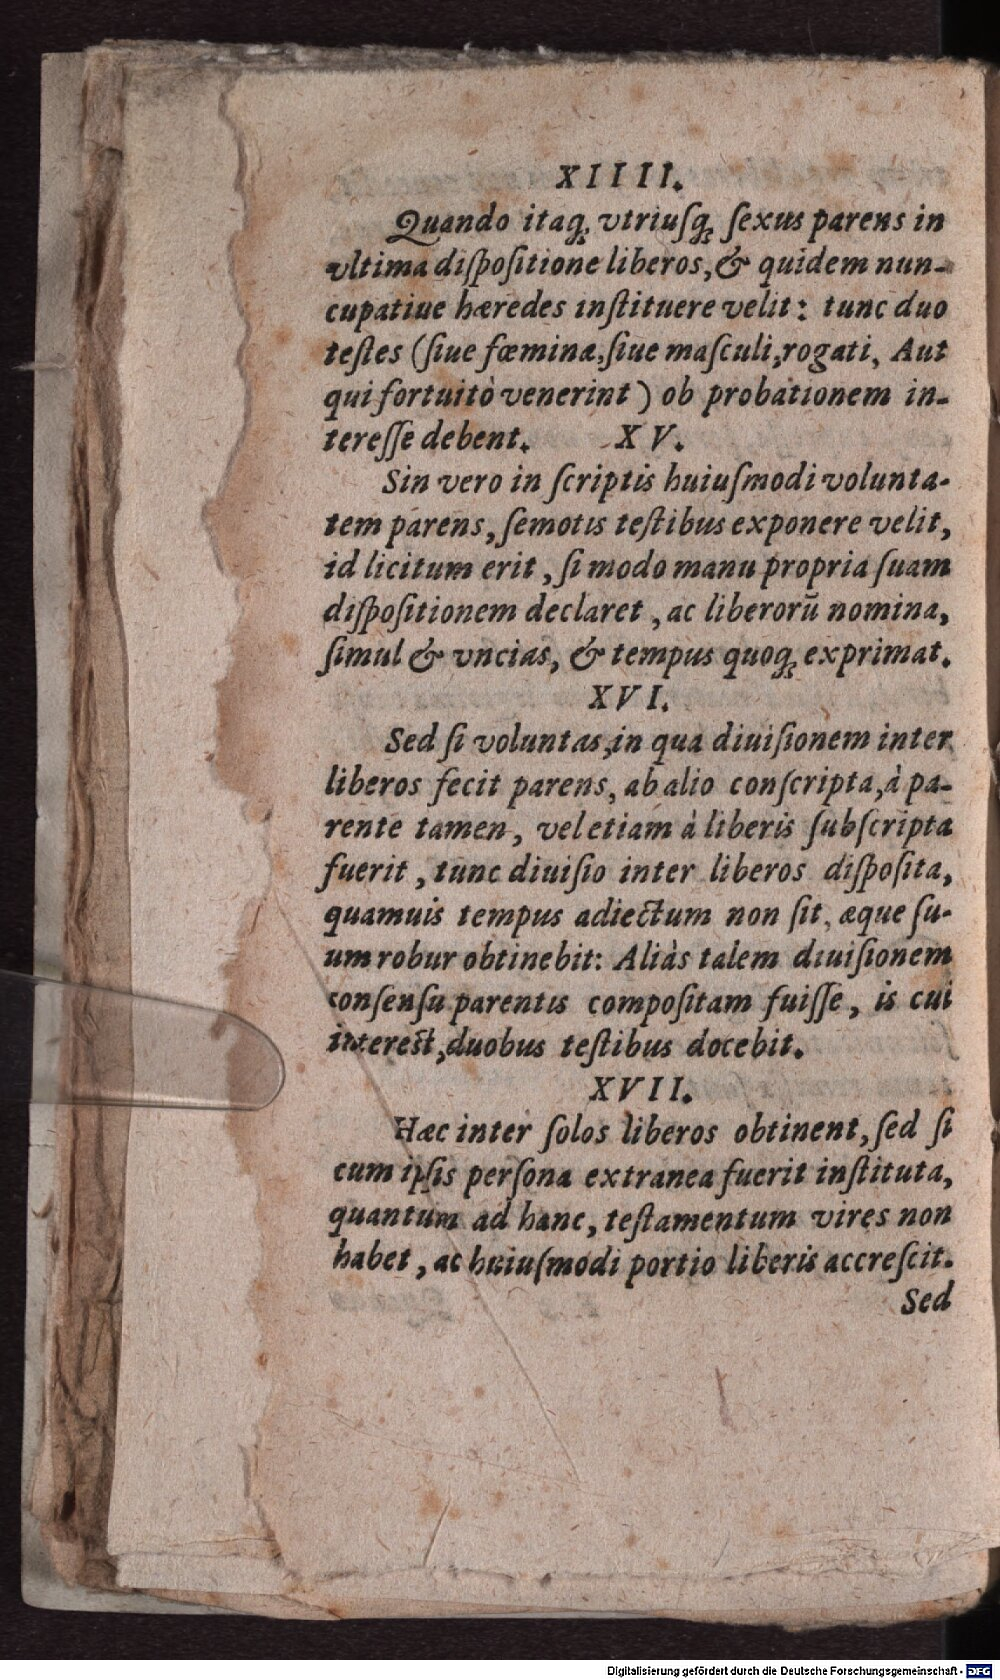 XIIII.
Quando itaq; vtriusq; ſexus parens in
vltima diſpoſitione liberos, & quidem nun-
cupatiue hæredes inſtituere velit: tunc duo
teſtes (ſiue fœminæ, ſiue maſculi, rogati, Aut
qui fortuitò venerint) ob probationem in-
tereſſe debent. XV.
Sin vero in ſcriptis huiuſmodi volunta-
tem parens, ſemotis teſtibus exponere velit,
id licitum erit, ſi modo manu propria ſuam
diſpoſitionem declaret, ac liberorũ nomina,
ſimul & vncias, & tempus quoq; exprimat.
XVI.
Sed ſi voluntas, in qua diuiſionem inter
liberos fecit parens, ab alio conſcripta, à pa-
rente tamen, vel etiam à liberis ſubſcripta
fuerit, tunc diuiſio inter liberos diſpoſita,
quamuis tempus adiectum non ſit, æque ſu-
um robur obtinebit: Aliàs talem diuiſionem
conſenſu parentis compoſitam fuiſſe, is cui
intereſt, duobus teſtibus docebit.
XVII.
Hæc inter ſolos liberos obtinent, ſed ſi
cum ipſis perſona extranea fuerit inſtituta,
quantum ad hanc, teſtamentum vires non
habet, ac huiuſmodi portio liberis accreſcit.
Sed
Digitalisierung gefördert durch die Deutsche Forschungsgemeinschaft - DFG